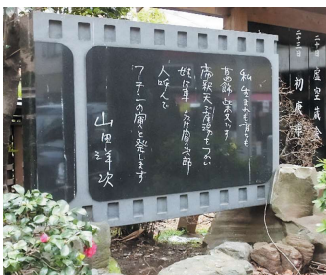 二十三日 初庚申
私生まれも育ちも
葛飾柴又です
帝釈天で産湯をつかい
姓は車 名は寅次郎
人呼んで
フーテンの寅と発します
山田洋次